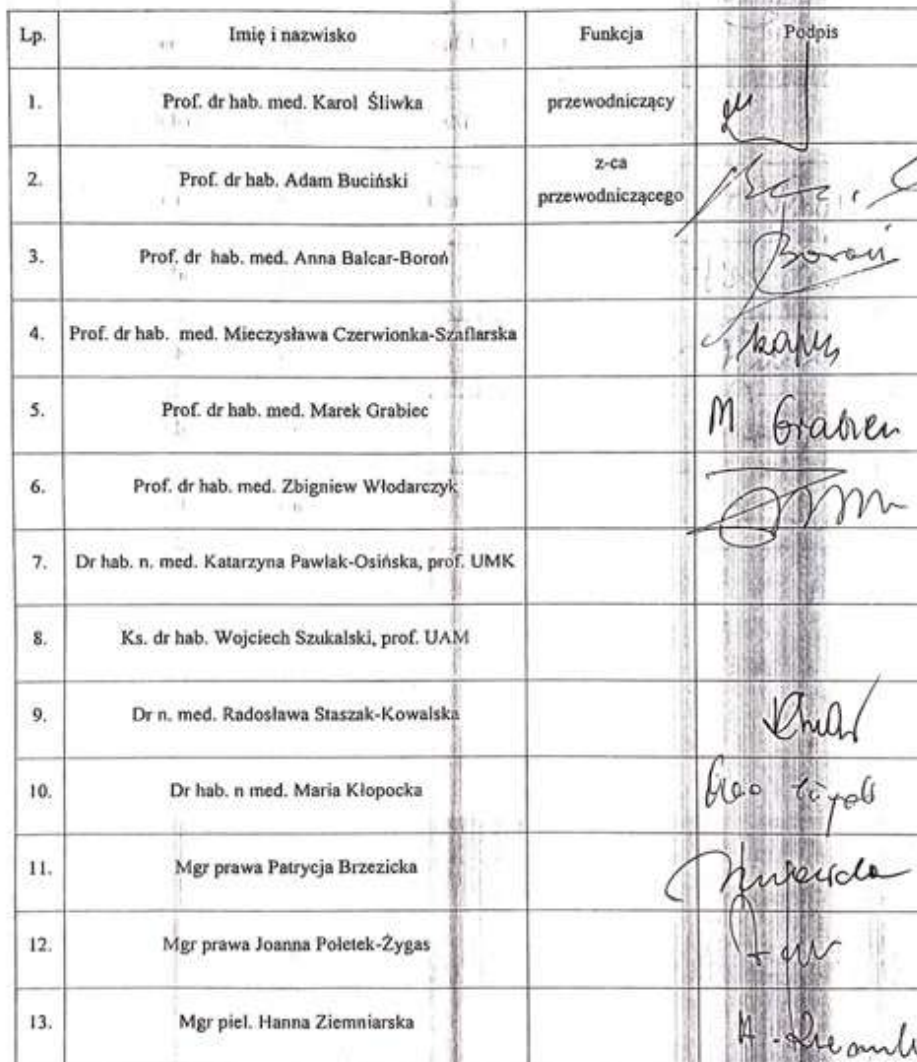 Lp. Imię i nazwisko Funkcja Podpis
1. Prof. dr hab. med. Karol Śliwka przewodniczący
2. Prof. dr hab. Adam Buciński z-ca
przewodniczącego
3. Prof. dr hab. med. Anna Balcar-Boroń Boroń
4. Prof. dr hab. med. Mieczysława Czerwionka-Szaflarska
5. Prof. dr hab. med. Marek Grabiec M Grabiec
6. Prof. dr hab. med. Zbigniew Włodarczyk
7. Dr hab. n. med. Katarzyna Pawlak-Osińska, prof. UMK
8. Ks. dr hab. Wojciech Szukalski, prof. UAM
9. Dr n. med. Radosława Staszak-Kowalska
10. Dr hab. n med. Maria Kłopocka
11. Mgr prawa Patrycja Brzezicka
12. Mgr prawa Joanna Połetek-Żygas
13. Mgr piel. Hanna Ziemniarska